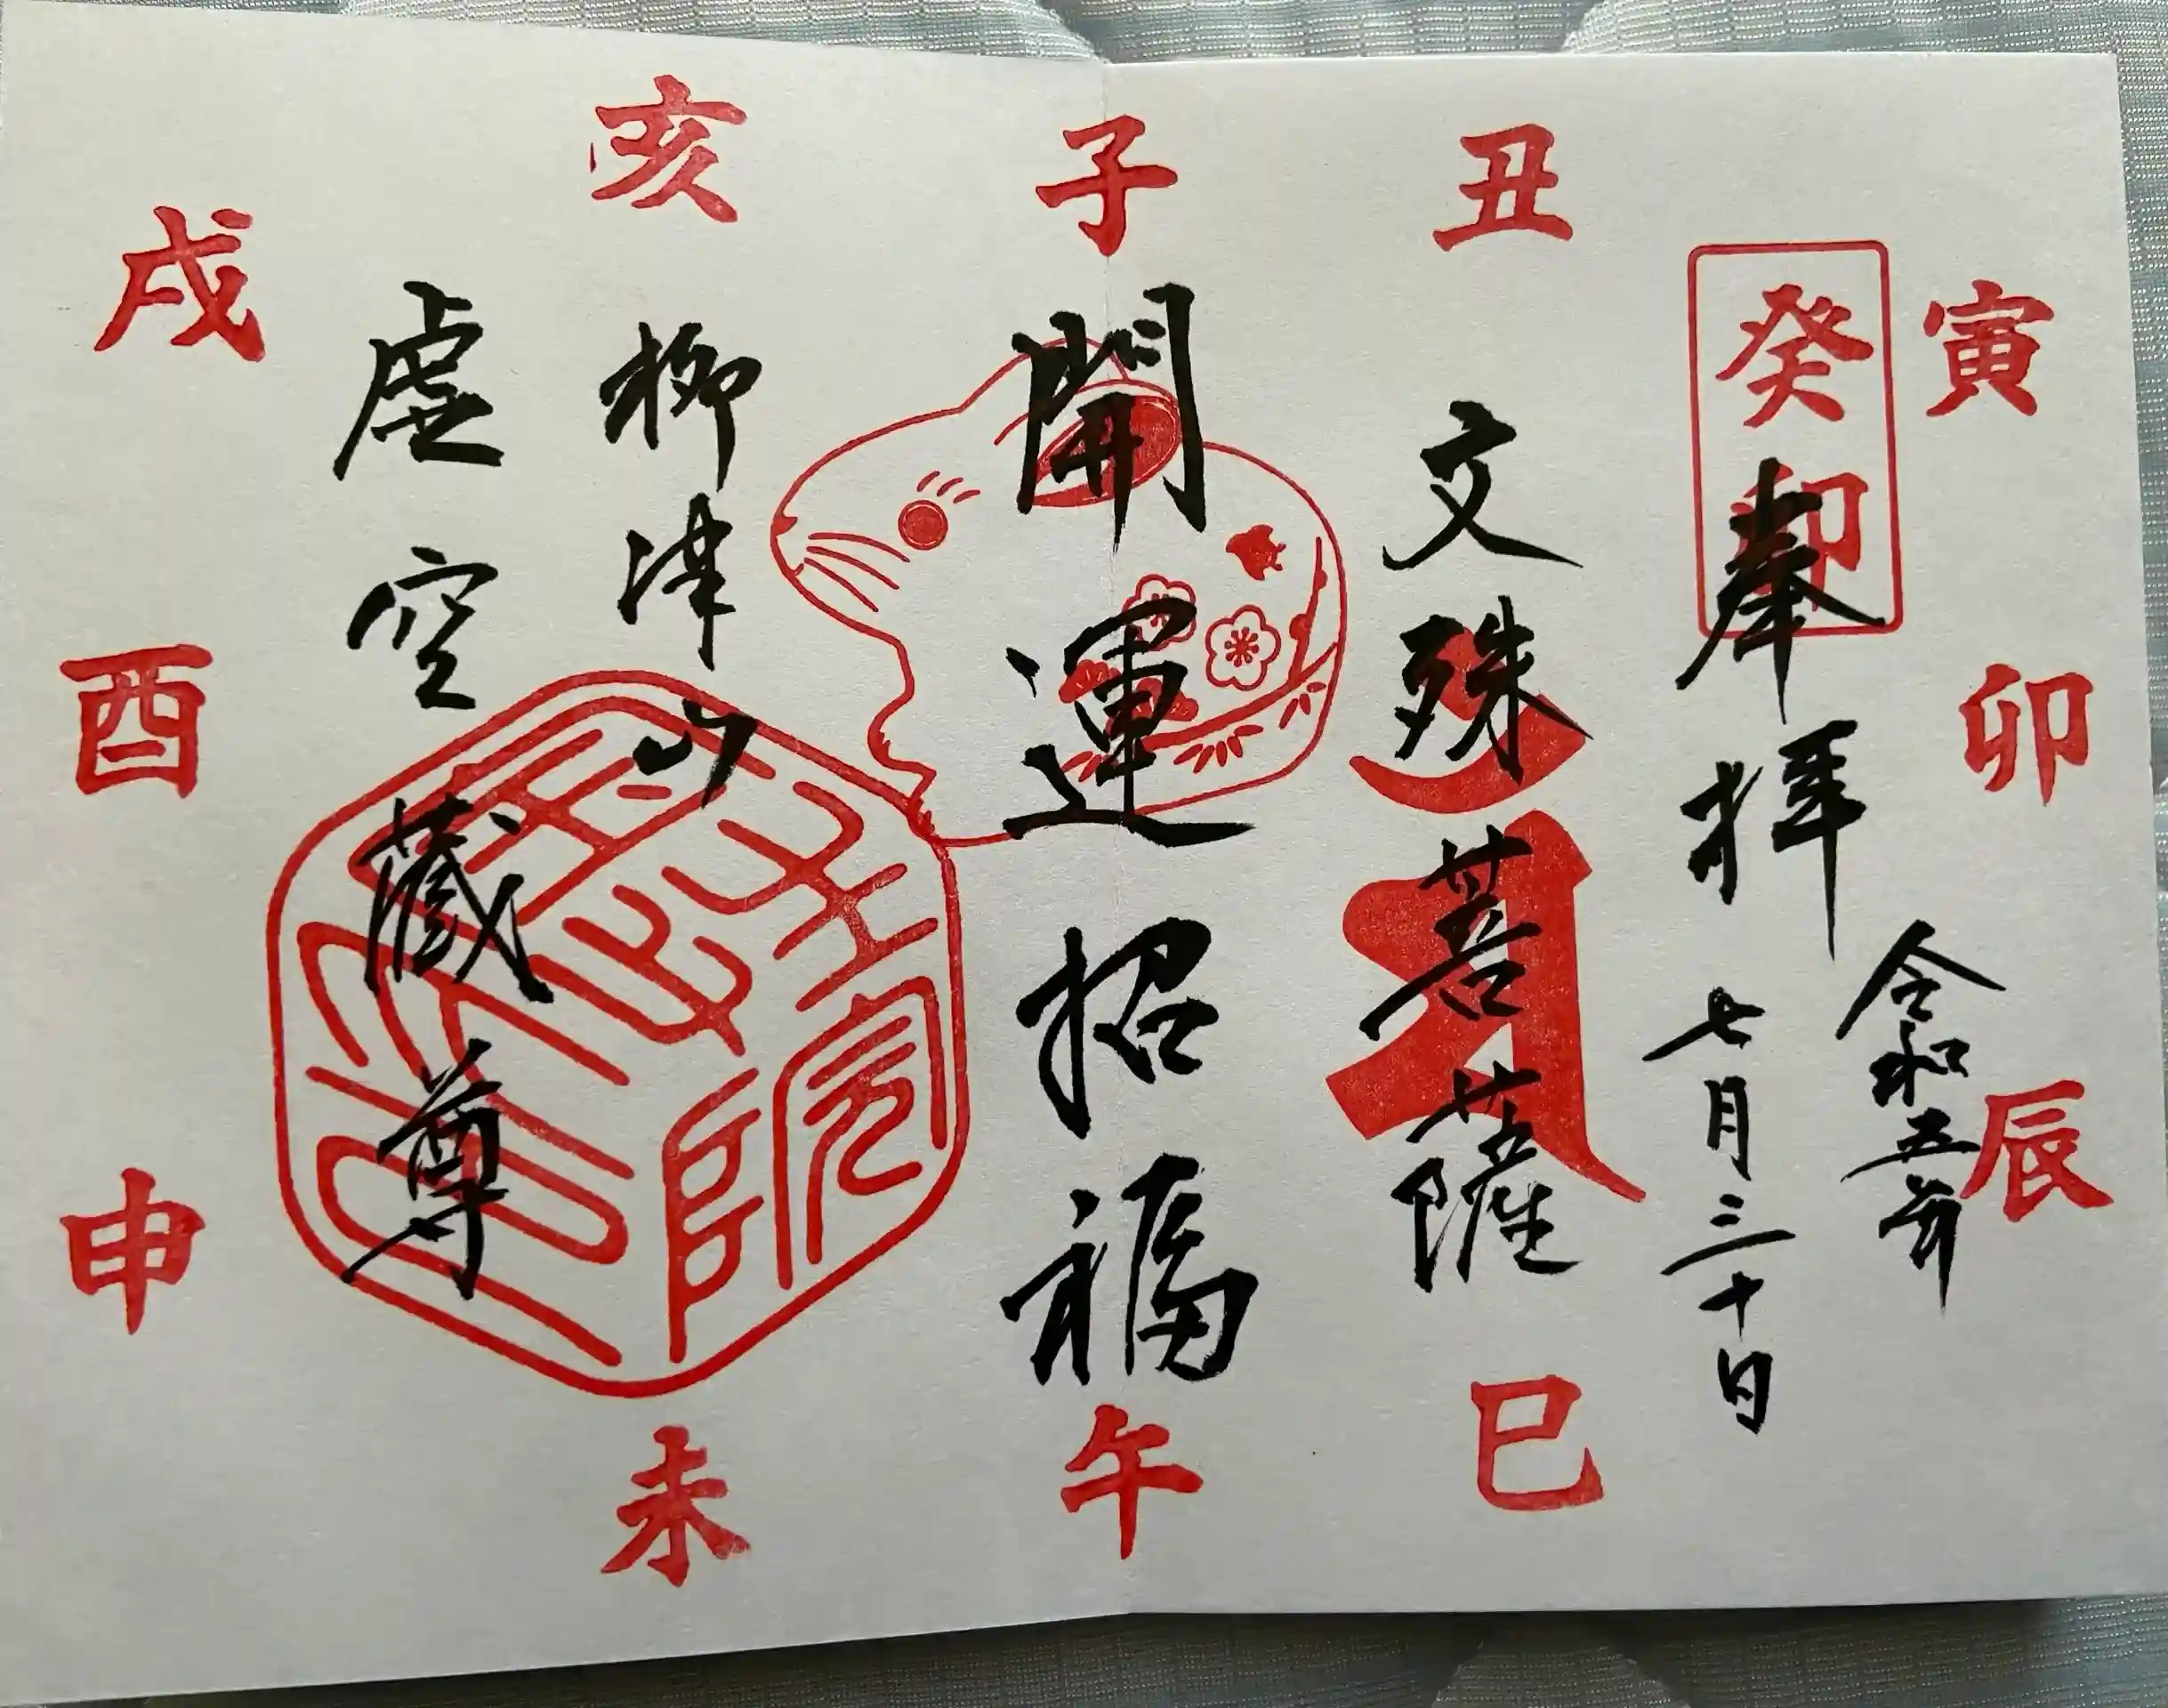 子
丑
寅
卯
辰
巳
午
未
申
酉
戌
亥
癸卯
令和五年
奉拝 七月三十日
文殊菩薩
開運招福
柳津山
虚空蔵尊